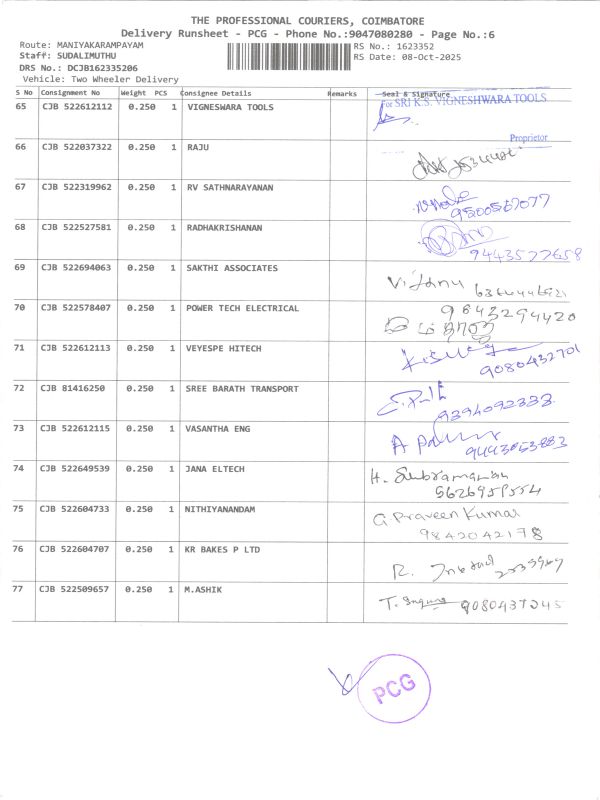 THE PROFESSIONAL COURIERS, COIMBATORE
Delivery Runsheet - PCG - Phone No.:9047080280 - Page No.:6
Route: MANIYAKARAMPAYAM RS No.: 1623352
Staff: SUDALIMUTHU RS Date: 08-Oct-2025
DRS No.: DCJB162335206
Vehicle: Two Wheeler Delivery
S No Consignment No Weight PCS Consignee Details Remarks Seal & Signature
For SRI K.S. VIGNESHWARA TOOLS
65 CJB 522612112 0.250 1 VIGNESWARA TOOLS
Proprietor
66 CJB 522037322 0.250 1 RAJU
67 CJB 522319962 0.250 1 RV SATHNARAYANAN
9500567077
68 CJB 522527581 0.250 1 RADHAKRISHANAN
9443577658
69 CJB 522694063 0.250 1 SAKTHI ASSOCIATES
70 CJB 522578407 0.250 1 POWER TECH ELECTRICAL 9843294420
71 CJB 522612113 0.250 1 VEYESPE HITECH
9080432701
72 CJB 81416250 0.250 1 SREE BARATH TRANSPORT
9394092333
73 CJB 522612115 0.250 1 VASANTHA ENG
9443053883
74 CJB 522649539 0.250 1 JANA ELTECH H. Subramanian
75 CJB 522604733 0.250 1 NITHIYANANDAM G Praveen Kumar
9842042178
76 CJB 522604707 0.250 1 KR BAKES P LTD
77 CJB 522509657 0.250 1 M.ASHIK
PCG